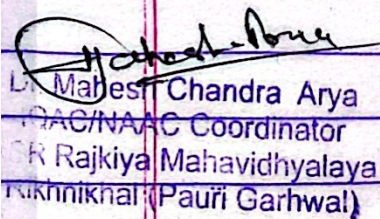 Dr Mahesh Chandra Arya
IQAC/NAAC Coordinator
SR Rajkiya Mahavidhyalaya
Rikhnikhal (Pauri Garhwal)